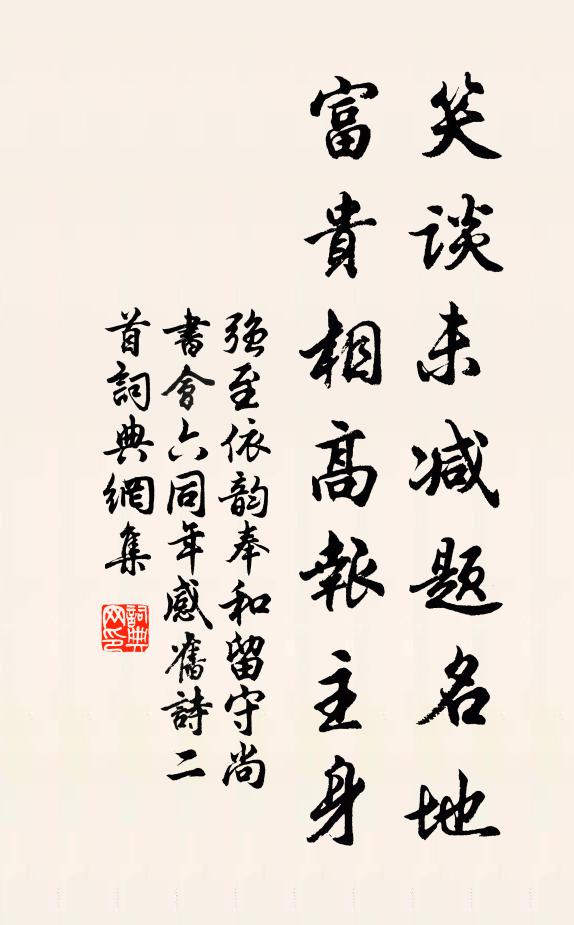 笑談未减题名地
富貴相高報主身
强至依韵奉和留守尚
書會六同年感舊詩二
首詞典網集
詞典
网印